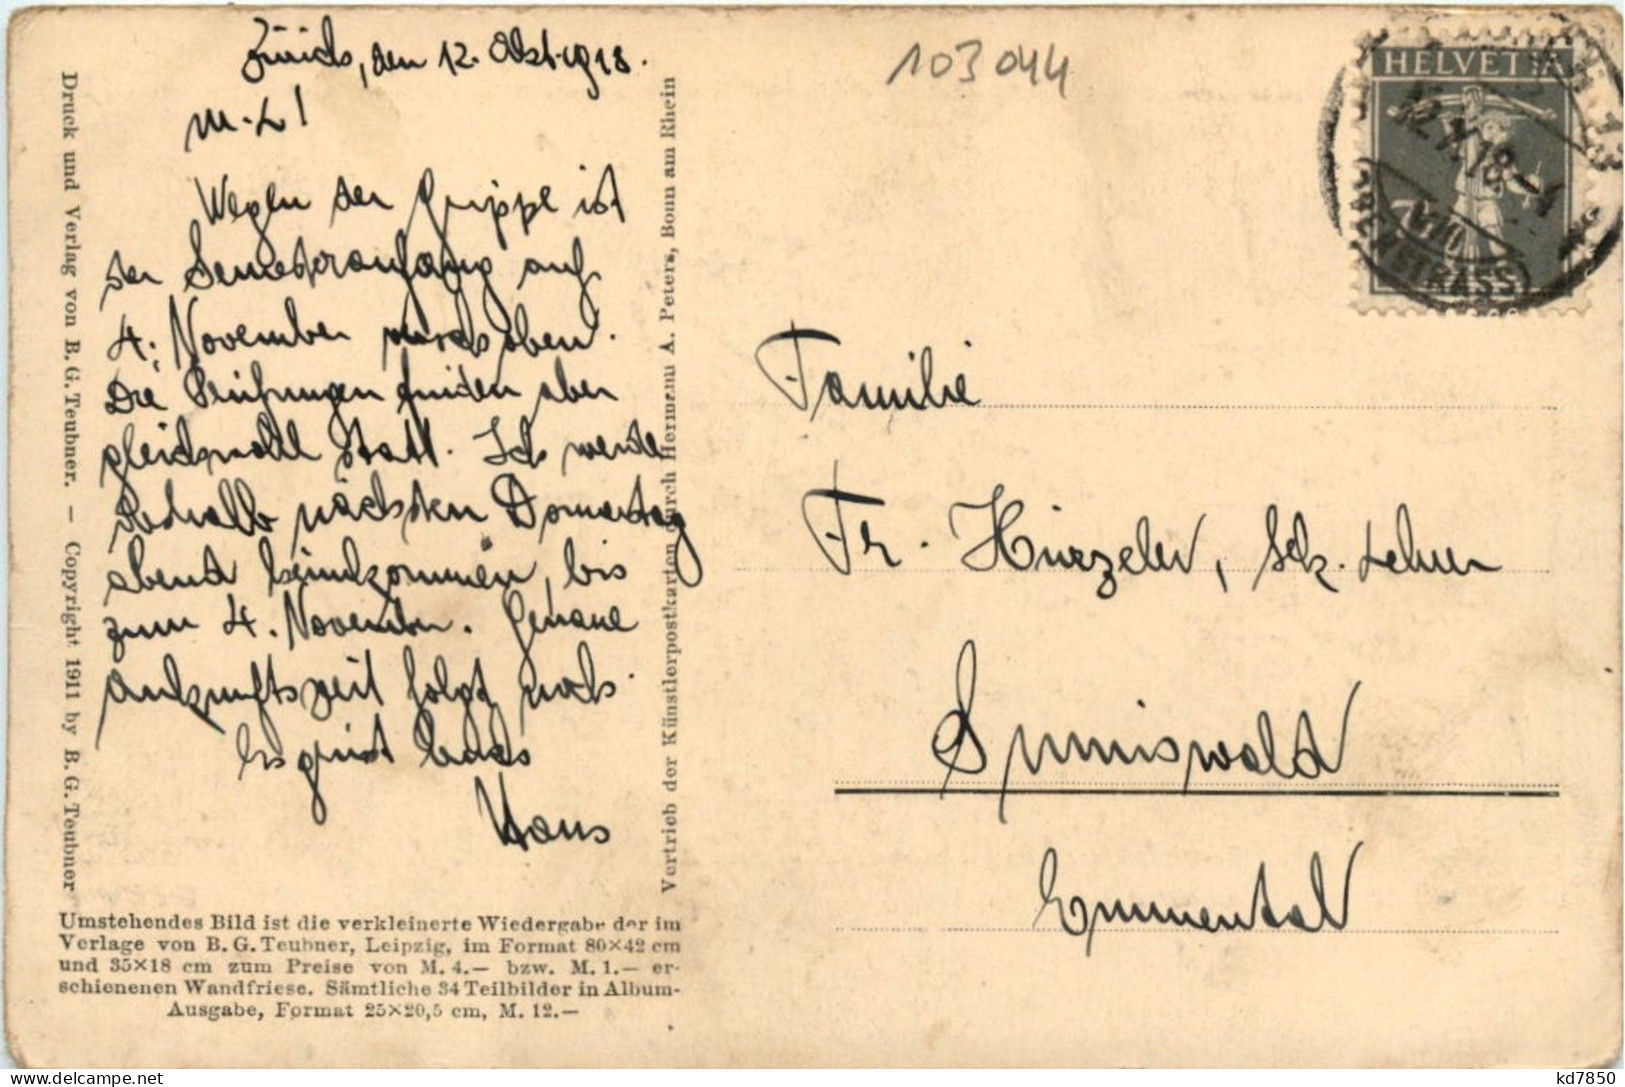 Zürich, den 12. Okt. 1918.
M. L!
Wegen der Grippe ist
der Semesteranfang auf
4. November verschoben.
Die Prüfungen finden aber
gleichwohl statt. Ich werde
deshalb nächsten Donnerstag
abend heimkommen, bis
zum 4. November. Genaue
Ankunftszeit folgt noch.
Es grüsst Euch
Hans
Druck und Verlag von B. G. Teubner. – Copyright 1911 by B. G. Teubner
Vertrieb der Künstlerpostkarten durch Hermann A. Peters, Bonn am Rhein
Umstehendes Bild ist die verkleinerte Wiedergabe der im
Verlage von B. G. Teubner, Leipzig, im Format 80×42 cm
und 35×18 cm zum Preise von M. 4.— bzw. M. 1.— er-
schienenen Wandfriese. Sämtliche 34 Teilbilder in Album-
Ausgabe, Format 25×20,5 cm, M. 12.—
103 044
HELVETIA
12.X.18–4
VIII
Familie
Fr. Hirzeler, Sek. Lehrer
Sumiswald
Emmental
kd7850